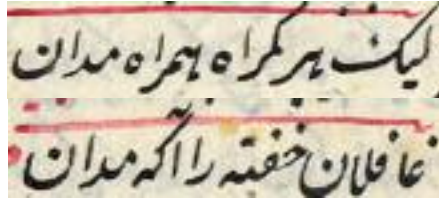 لیک هر گمراه همراه مدان
غافلان خفته را آگه مدان